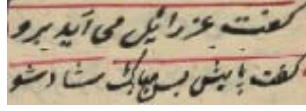 گفت عزرائیل می آید برو
گفت بابیش بس مبارک شاد شو